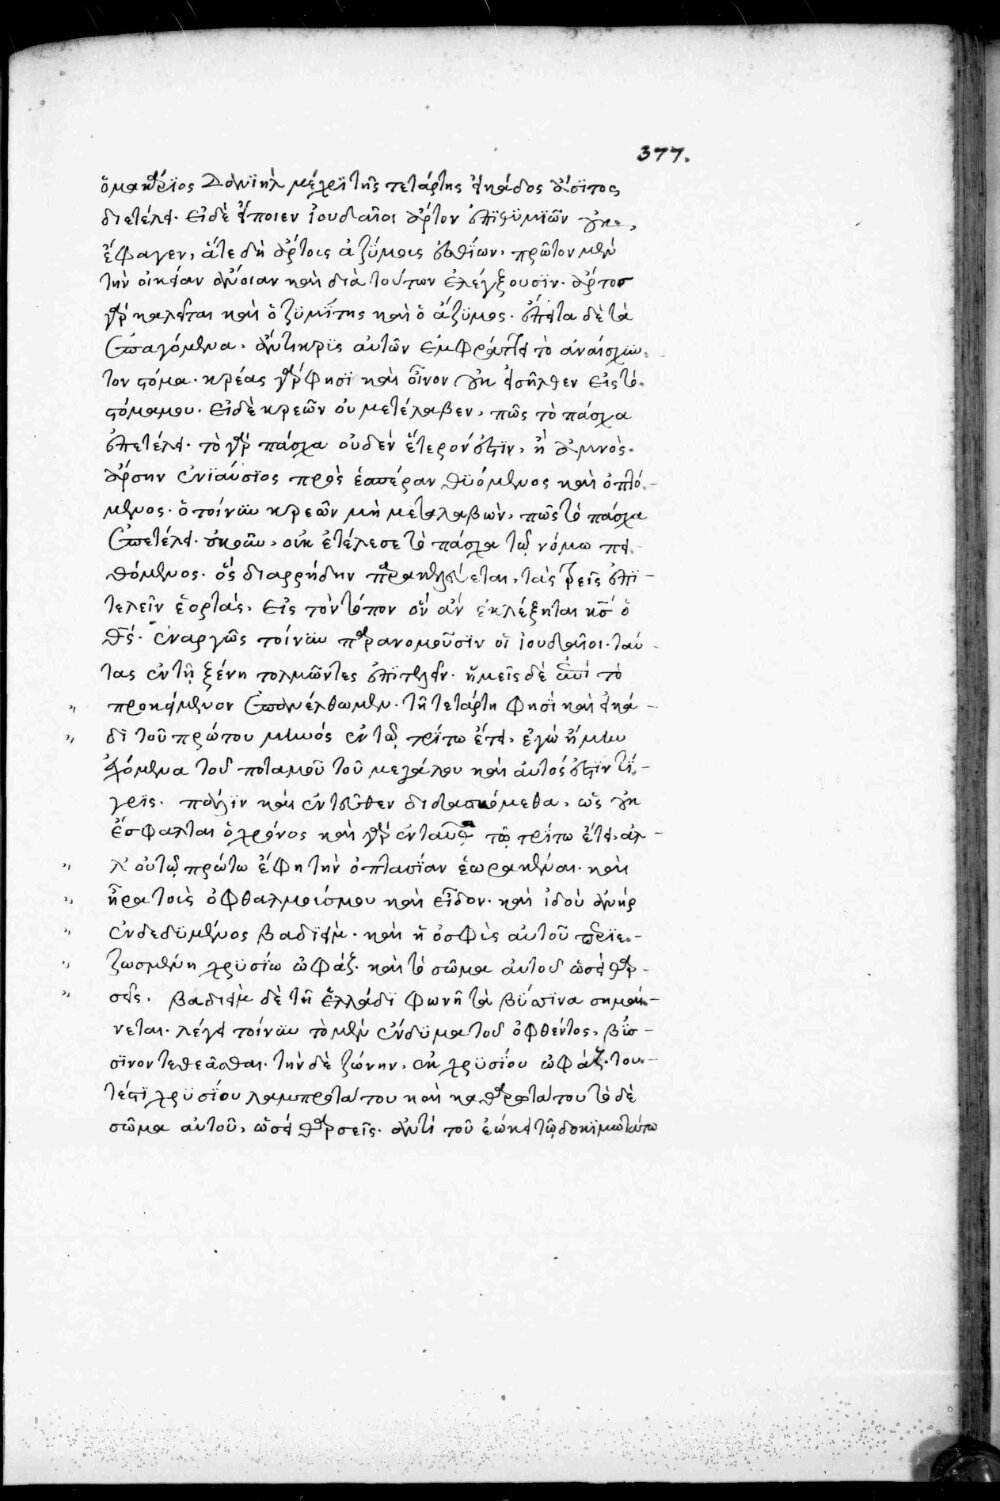 377.
ὁ μακάριος Δανιὴλ μέχρι τῆς τετάρτης εἰκάδος ἄσιτος
διετέλει. εἰ δὲ εἴποιεν ἰουδαῖοι ἄρτον ἐπιθυμιῶν οὐκ
ἔφαγεν, ἅτε δὴ ἄρτοις ἀζύμοις ἐσθίων. πρῶτον μὲν
τὴν οἰκείαν ἄνοιαν καὶ διὰ τούτων ἐλέγξουσιν. ἄρτος
γὰρ καλεῖται καὶ ὁ ζυμίτης καὶ ὁ ἄζυμος. ἔπειτα δὲ τὰ
ἐπαγόμενα, ἄντικρις αὐτῶν ἐμφράττει τὸ ἀναίσχυν
τον στόμα. κρέας γάρ φησι καὶ οἶνον οὐκ εἰσῆλθεν εἰς τὸ
στόμα μου. εἰ δὲ κρεῶν οὐ μετέλαβεν, πῶς τὸ πάσχα
ἐπετέλει. τὸ γὰρ πάσχα οὐδὲν ἕτερόν ἐστιν, ἢ ἀμνὸς
ἄρσην ἐνιαύσιος πρὸς ἑσπέραν θυόμενος καὶ ὀπτό
μενος. ὁ τοίνυν κρεῶν μὴ μεταλαβὼν, πῶς τὸ πάσχα
ἐπετέλει. οὐκοῦν, οὐκ ἐτέλεσε τὸ πάσχα τῷ νόμω πει
θόμενος. ὃς διαρρήδην παρακελεύεται, τὰς τρεῖς ἐπι
τελεῖν ἑορτὰς, εἰς τὸν τόπον ὃν ἂν ἐκλέξηται κς ὁ
θς. ἐναργῶς τοίνυν παρανομοῦσιν οἱ ἰουδαῖοι. ταύ
τας ἐν τῇ ξένη τολμῶντες ἐπιτελεῖν. ἡμεῖς δὲ ἐπὶ τὸ
προκείμενον ἐπανέλθωμεν. τῇ τετάρτη φησὶ καὶ εἰκά
δι τοῦ πρώτου μηνός ἐν τῷ τρίτω ἔτει, ἐγὼ ἤμην
ἐχόμενα τοῦ ποταμοῦ τοῦ μεγάλου καὶ αὐτός ἐστιν τί
γρις. πάλιν καὶ ἐντεῦθεν διδασκόμεθα, ὡς οὐκ
ἔσφαλται ὁ χρόνος καὶ γὰρ ἐνταῦθα τῶ τρίτω ἔτει, ἀλ
λ' οὐ τῷ πρώτω ἔφη τὴν ὀπτασίαν ἑωρακέναι. καὶ
ἦρα τοὺς ὀφθαλμούς μου καὶ εἶδον. καὶ ἰδοὺ ἀνὴρ
ἐνδεδυμένος βαδδεὶμ. καὶ ἡ ὀσφὺς αὐτοῦ περιε
ζωσμένη χρυσίω ὠφάζ. καὶ τὸ σῶμα αὐτοῦ ὡσεὶ θαρ
σεῖς. βαδδεὶμ δὲ τῇ ἑλλάδι φωνῇ τὰ βύσσινα σημαί
νεται. λέγει τοίνυν τὸ μὲν ἔνδυμα τοῦ ὀφθέντος, βύσ
σινον τεθεᾶσθαι. τὴν δὲ ζώνην, ἐκ χρυσίου ὠφάζ. του
τέστι χρυσίου λαμπροτάτου καὶ καθαρωτάτου τὸ δὲ
σῶμα αὐτοῦ, ὡσεὶ θαρσεῖς. ἀντὶ τοῦ ἐώκει τῷ δοκιμωτάτω